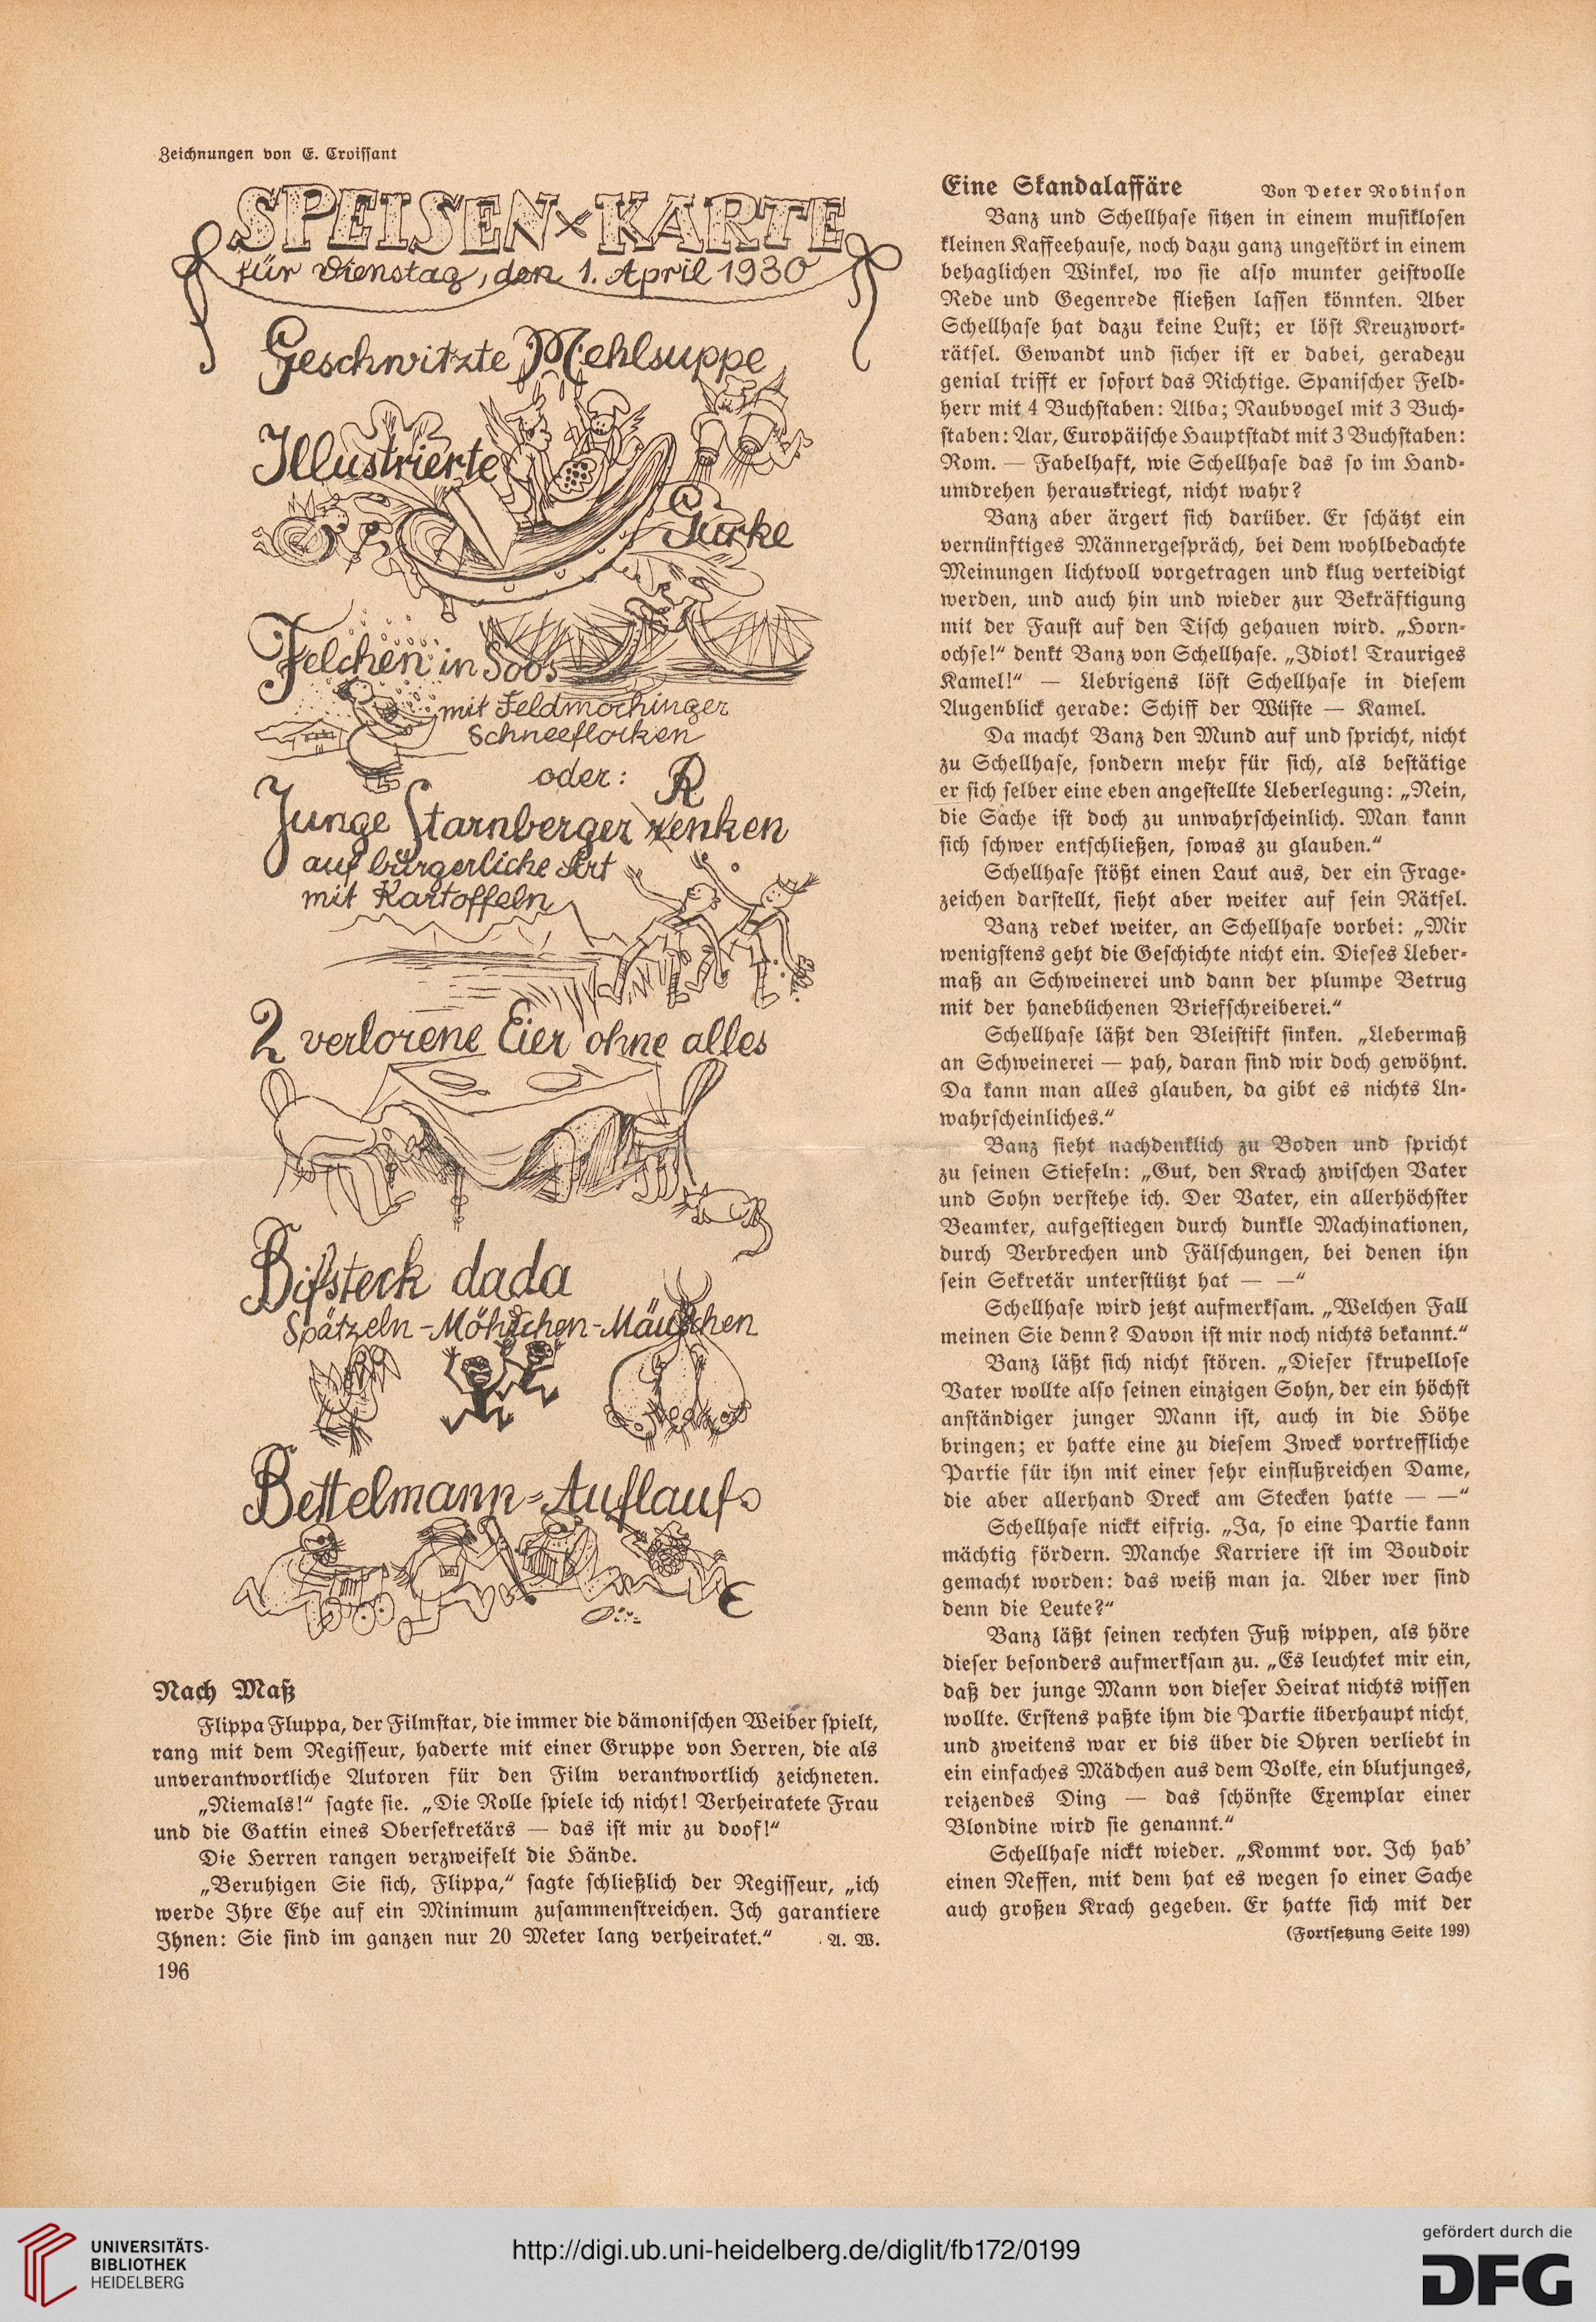 Zeichnungen von E. Croissant
SPEISEN×KARTE
für Dienstag, den 1. April 1930
Geschwitzte Mehlsuppe
Illustrierte
Gurke
Felchen in Soos
mit Feldmochinger
Schneeflocken
oder: R
Junge Starnberger renken
auf bürgerliche Art
mit Kartoffeln
2 verlorene Eier ohne alles
Bifsteck dada
Spätzeln-Möhrchen-Mäuschen
Bettelmann-Auflauf
Nach Maß
Flippa Fluppa, der Filmstar, die immer die dämonischen Weiber spielt,
rang mit dem Regisseur, haderte mit einer Gruppe von Herren, die als
unverantwortliche Autoren für den Film verantwortlich zeichneten.
„Niemals!“ sagte sie. „Die Rolle spiele ich nicht! Verheiratete Frau
und die Gattin eines Obersekretärs — das ist mir zu doof!“
Die Herren rangen verzweifelt die Hände.
„Beruhigen Sie sich, Flippa,“ sagte schließlich der Regisseur, „ich
werde Ihre Ehe auf ein Minimum zusammenstreichen. Ich garantiere
Ihnen: Sie sind im ganzen nur 20 Meter lang verheiratet.“ A. W.
196
Eine Skandalaffäre Von Peter Robinson
Banz und Schellhase sitzen in einem musiklosen
kleinen Kaffeehause, noch dazu ganz ungestört in einem
behaglichen Winkel, wo sie also munter geistvolle
Rede und Gegenrede fließen lassen könnten. Aber
Schellhase hat dazu keine Lust; er löst Kreuzwort-
rätsel. Gewandt und sicher ist er dabei, geradezu
genial trifft er sofort das Richtige. Spanischer Feld-
herr mit 4 Buchstaben: Alba; Raubvogel mit 3 Buch-
staben: Aar, Europäische Hauptstadt mit 3 Buchstaben:
Rom. — Fabelhaft, wie Schellhase das so im Hand-
umdrehen herauskriegt, nicht wahr?
Banz aber ärgert sich darüber. Er schätzt ein
vernünftiges Männergespräch, bei dem wohlbedachte
Meinungen lichtvoll vorgetragen und klug verteidigt
werden, und auch hin und wieder zur Bekräftigung
mit der Faust auf den Tisch gehauen wird. „Horn-
ochse!“ denkt Banz von Schellhase. „Idiot! Trauriges
Kamel!“ — Uebrigens löst Schellhase in diesem
Augenblick gerade: Schiff der Wüste — Kamel.
Da macht Banz den Mund auf und spricht, nicht
zu Schellhase, sondern mehr für sich, als bestätige
er sich selber eine eben angestellte Ueberlegung: „Nein,
die Sache ist doch zu unwahrscheinlich. Man kann
sich schwer entschließen, sowas zu glauben.“
Schellhase stößt einen Laut aus, der ein Frage-
zeichen darstellt, sieht aber weiter auf sein Rätsel.
Banz redet weiter, an Schellhase vorbei: „Mir
wenigstens geht die Geschichte nicht ein. Dieses Ueber-
maß an Schweinerei und dann der plumpe Betrug
mit der hanebüchenen Briefschreiberei.“
Schellhase läßt den Bleistift sinken. „Uebermaß
an Schweinerei — pah, daran sind wir doch gewöhnt.
Da kann man alles glauben, da gibt es nichts Un-
wahrscheinliches.“
Banz sieht nachdenklich zu Boden und spricht
zu seinen Stiefeln: „Gut, den Krach zwischen Vater
und Sohn verstehe ich. Der Vater, ein allerhöchster
Beamter, aufgestiegen durch dunkle Machinationen,
durch Verbrechen und Fälschungen, bei denen ihn
sein Sekretär unterstützt hat — —“
Schellhase wird jetzt aufmerksam. „Welchen Fall
meinen Sie denn? Davon ist mir noch nichts bekannt.“
Banz läßt sich nicht stören. „Dieser skrupellose
Vater wollte also seinen einzigen Sohn, der ein höchst
anständiger junger Mann ist, auch in die Höhe
bringen; er hatte eine zu diesem Zweck vortreffliche
Partie für ihn mit einer sehr einflußreichen Dame,
die aber allerhand Dreck am Stecken hatte — —“
Schellhase nickt eifrig. „Ja, so eine Partie kann
mächtig fördern. Manche Karriere ist im Boudoir
gemacht worden: das weiß man ja. Aber wer sind
denn die Leute?“
Banz läßt seinen rechten Fuß wippen, als höre
dieser besonders aufmerksam zu. „Es leuchtet mir ein,
daß der junge Mann von dieser Heirat nichts wissen
wollte. Erstens paßte ihm die Partie überhaupt nicht,
und zweitens war er bis über die Ohren verliebt in
ein einfaches Mädchen aus dem Volke, ein blutjunges,
reizendes Ding — das schönste Exemplar einer
Blondine wird sie genannt.“
Schellhase nickt wieder. „Kommt vor. Ich hab’
einen Neffen, mit dem hat es wegen so einer Sache
auch großen Krach gegeben. Er hatte sich mit der
(Fortsetzung Seite 199)
UNIVERSITÄTS-
BIBLIOTHEK
HEIDELBERG
http://digi.ub.uni-heidelberg.de/diglit/fb172/0199
gefördert durch die
DFG